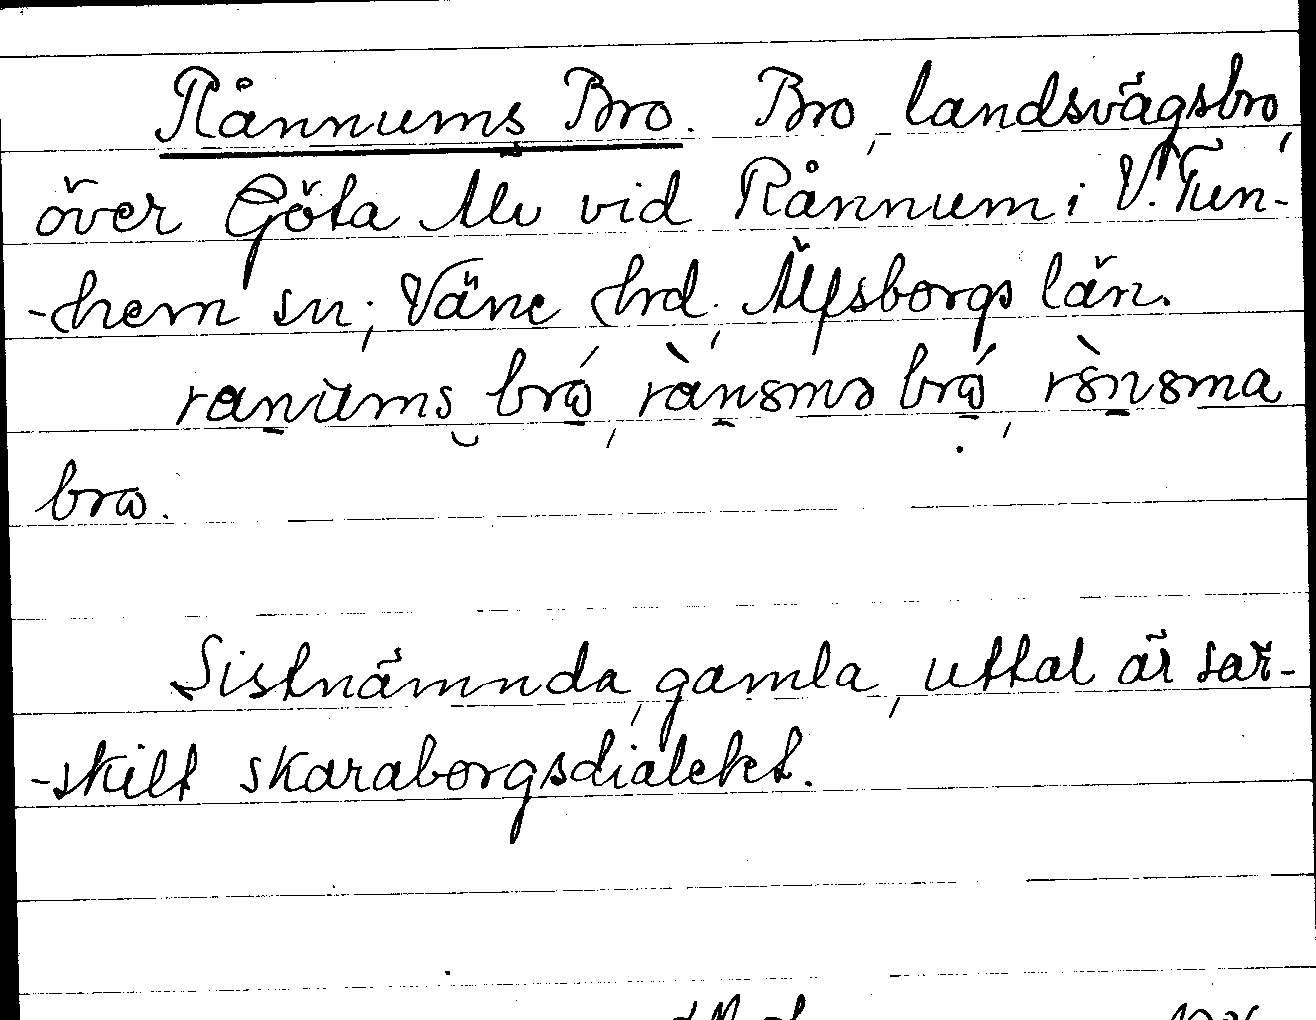 Rånnums Bro. Bro, landsvägsbro,
över Göta Älv vid Rånnum i V. Tun-
-hem sn, Väne hrd, Älfsborgs län.
ranums brώ, rànsmɘ brώ, rɘ̀nsma
brω.
Sistnämnda, gamla, uttal är sär-
-skilt skaraborgsdialekt.